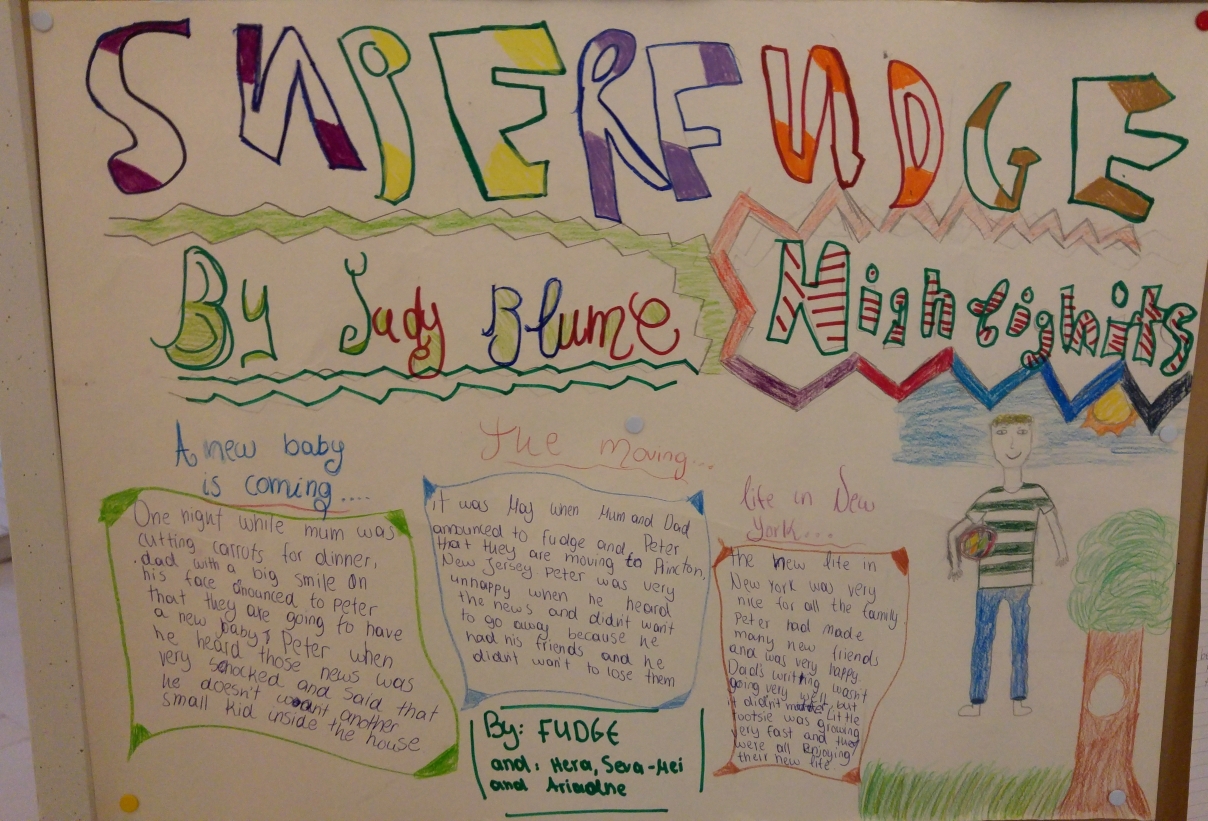 SUPERFUDGE
By Judy Blume
Highlights
A new baby
is coming....
One night while mum was
cutting carrots for dinner,
dad with a big smile on
his face anounced to Peter
that they are going to have
a new baby, Peter when
he heard those news was
very schocked and said that
he doesn't want another
small kid inside the house
The moving...
it was May when Mum and Dad
announced to Fudge and Peter
that they are moving to Princton,
New Jersey Peter was very
unhappy when he heard
the news and didn't want
to go away because he
had his friends and he
didn't want to lose them
By: FUDGE
and: Hera, Seva-Mei
and
life in New
York...
the new life in
New York was very
nice for all the family
Peter had made
many new friends
and was very happy
Dad's writting wasn't
going very well, but
it didn't matter Little
tootsie was growing
very fast and they
were all enjoying
their new life.